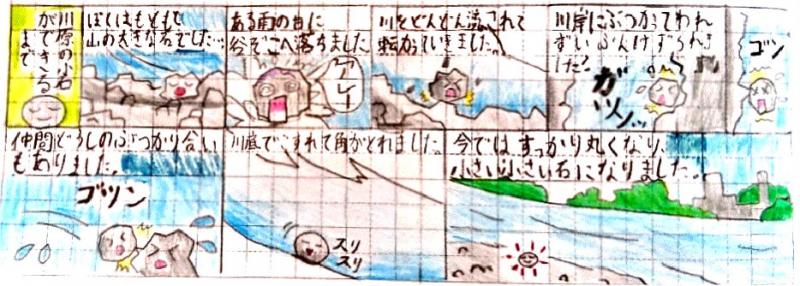 川原の小石
ができる
まで
ぼくはもともと
山の大きな石でした…
ある雨の日に
谷ぞこへ落ちました
アレー
川をどんどん流されて
転がっていきました。
川岸にぶつかってわれ
ずいぶんけずられま
した!
ガ
イン
ゴン
仲間どうしのぶつかり合い
もありました。
ゴツン
川底でこすれて角がとれました。
スリ
スリ
今ではすっかり丸くなり、
小さい小さい石になりました。